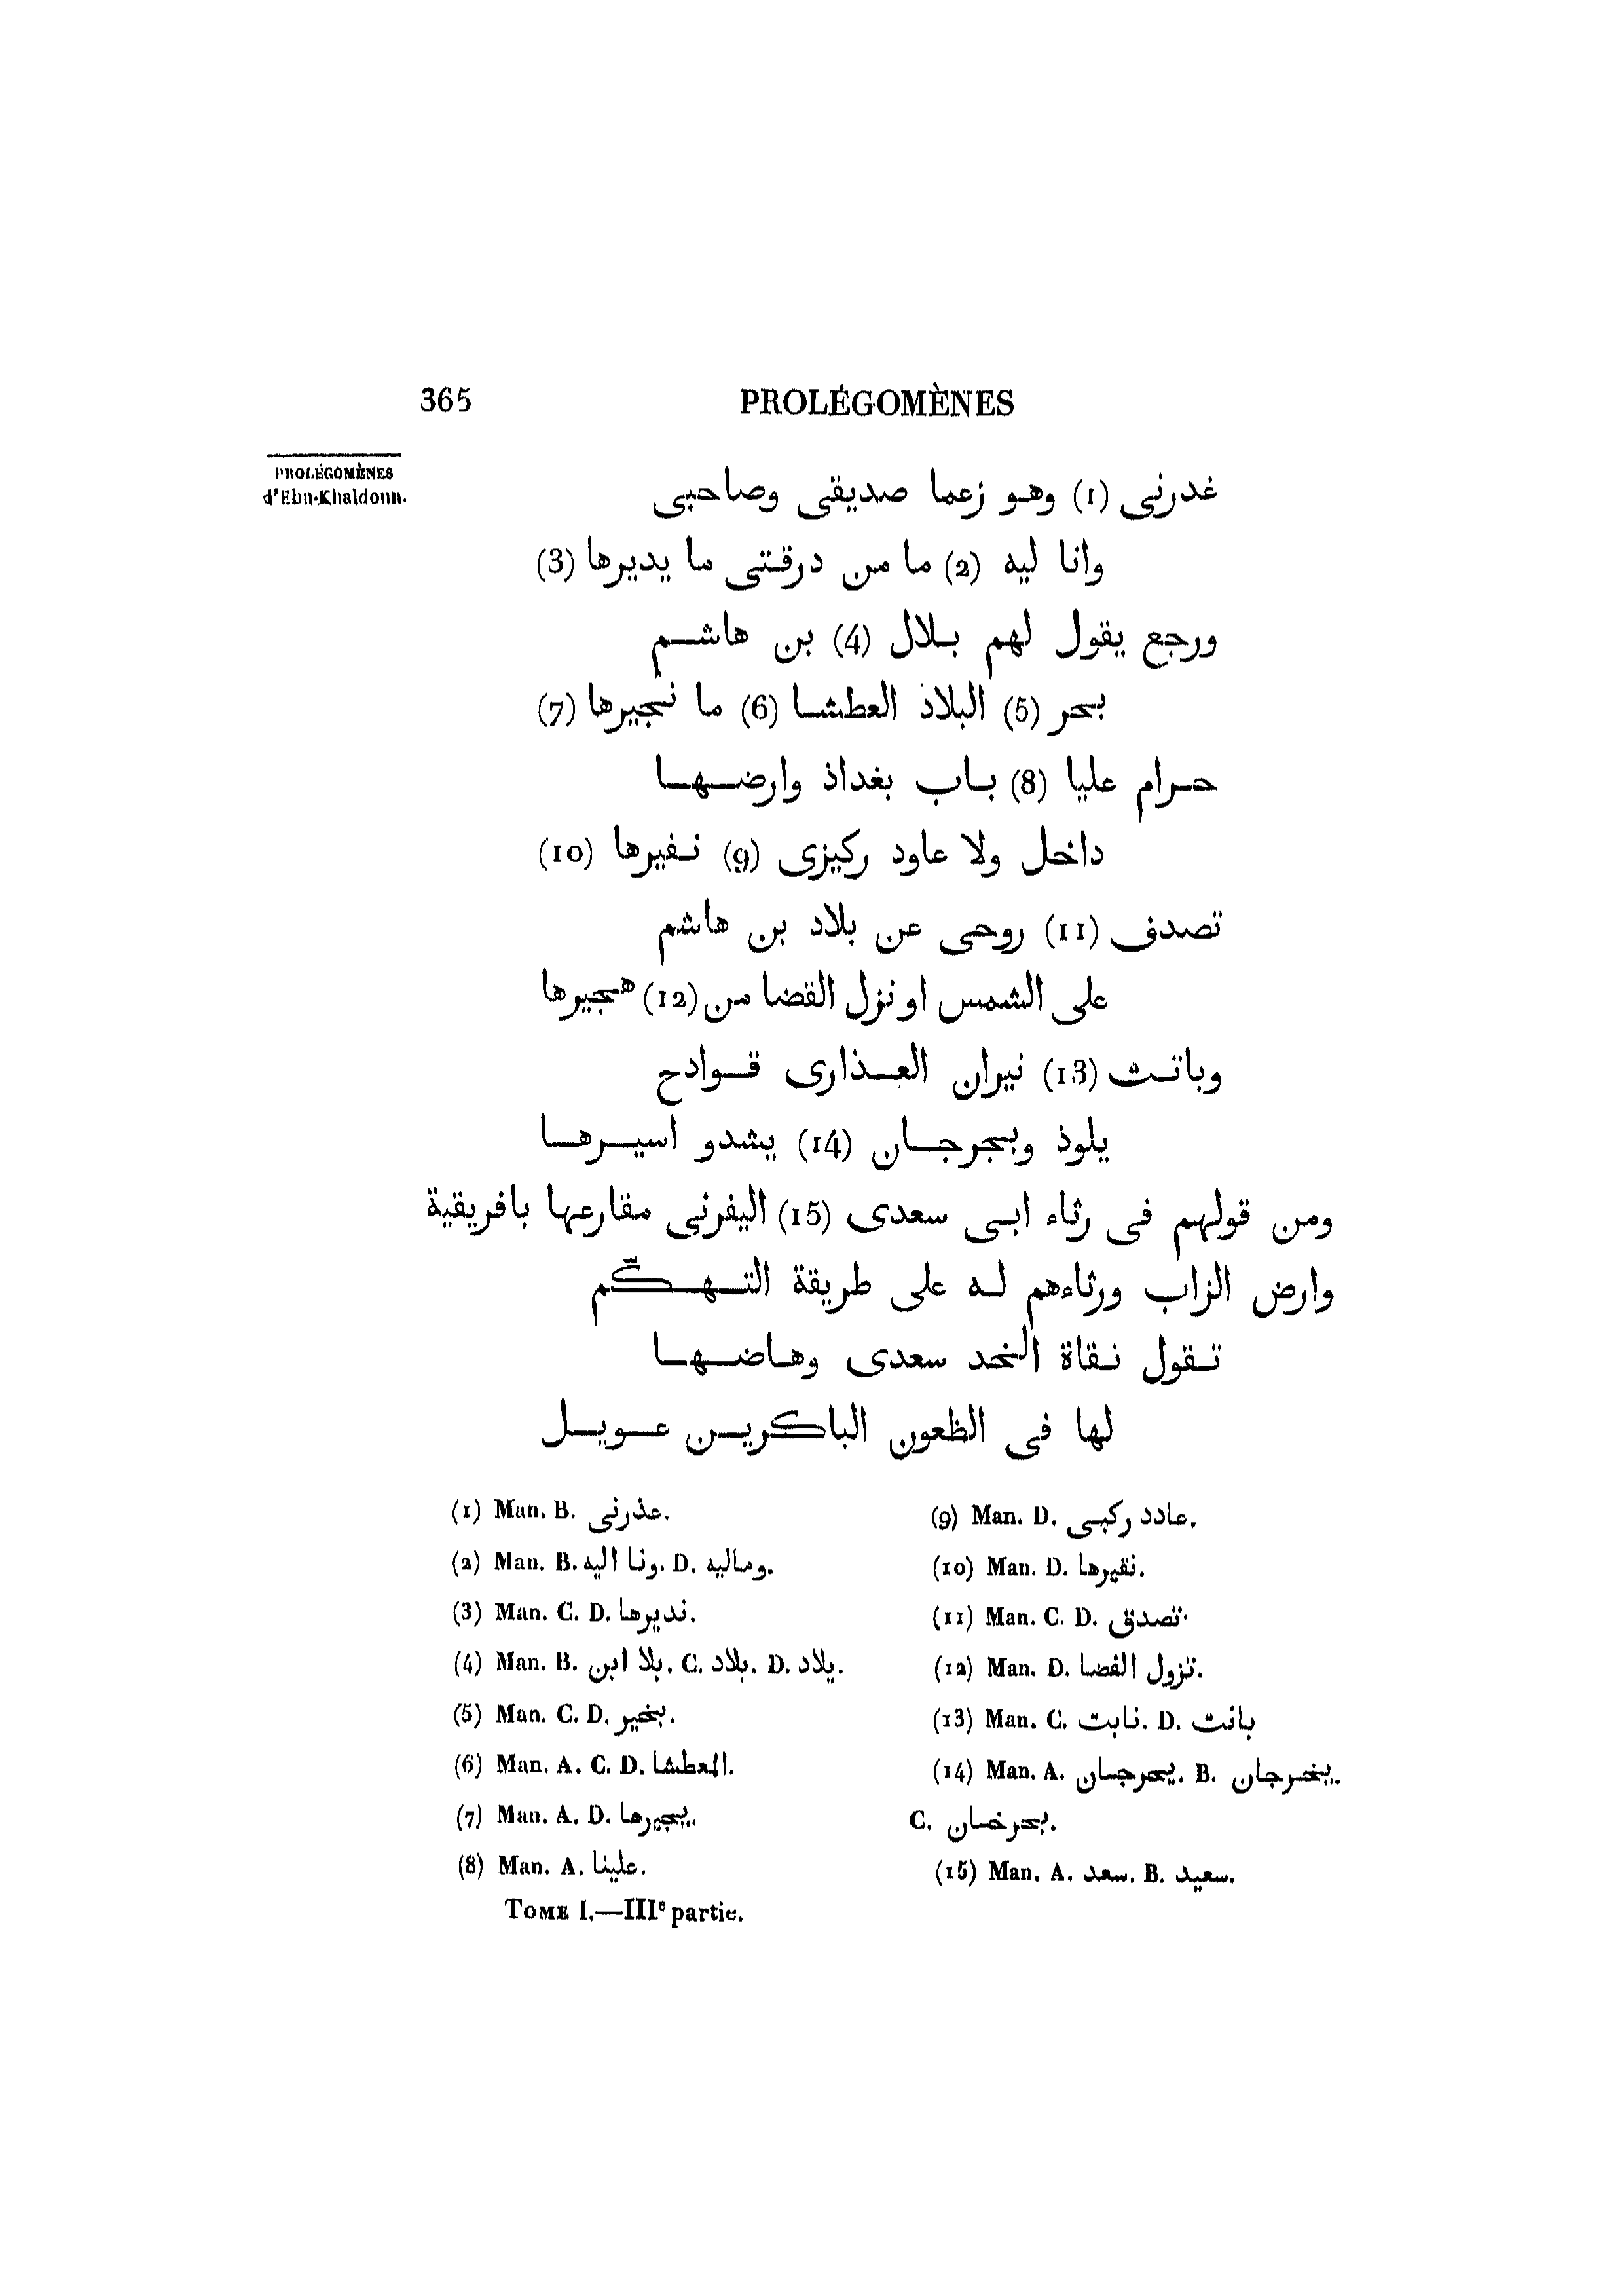 365
PROLÉGOMÈNES
PROLÉGOMÈNES
d'Ebn-Khaldoun.
غدرنى (1) وهو زعما صديقى وصاحبى
وانا ليه (2) ما من درقتى ما يديرها (3)
ورجع يقول لهم بلال (4) بن هاشم
بحر (5) البلاذ العطشا (6) ما نجيرها (7)
حرام عليا (8) باب بغداذ وارضها
داخل ولا عاود ركيزى (9) نفيرها (10)
تصدف (11) روحى عن بلاد بن هاشم
على الشمس او نزل القضا من (12) هجيرها
وباتت (13) نيران العذارى قوادح
يلوذ وبجرجان (14) يشدو اسيرها
ومن قولهم فى رثاء ابى سعدى (15) اليفرنى مقارعها بافريقية
وارض الزاب ورثاءهم له على طريقة التهكّم
تقول نقاة الخد سعدى وهاضها
لها فى الظعون الباكرين عويل
(1) Man. B. عذرنى.
(2) Man. B. ونا اليه. D. وماليه.
(3) Man. C. D. نديرها.
(4) Man. B. بلا ابن. C. بلاد. D. يلاد.
(5) Man. C. D. بخير.
(6) Man. A. C. D. المعطشا.
(7) Man. A. D. يجيرها.
(8) Man. A. علينا.
(9) Man. D. عادد ركبى.
(10) Man. D. نقيرها.
(11) Man. C. D. تصدق.
(12) Man. D. تزول الفضا.
(13) Man. C. نابت. D. بانت
(14) Man. A. يحرجان. B. يخرجان.
C. بحرخان.
(15) Man. A. سعد. B. سعيد.
TOME I.—IIIe partie.